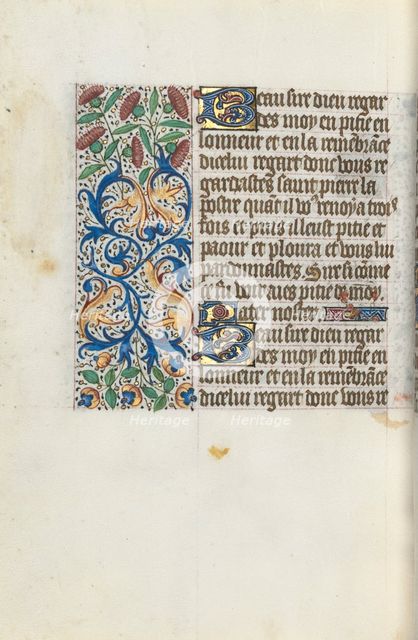 Beau sire dieu regar
des moy en pitie en
lonneur et en la remēbrāce
dicelui regart donc vous re
gardastes saint pierre la
postre quāt il vꝰ renoya trois
fois et puis il eust pitie et
paour et ploura et vous lui
pardonnastes Sire si come
ce fu voir aies pitie de moy
Pater noster
Beau sire dieu regar
des moy en pitie en
lonneur et en la remēbrāce
dicelui regart donc vous re
Heritage
Heritage
Heritage
Heritage